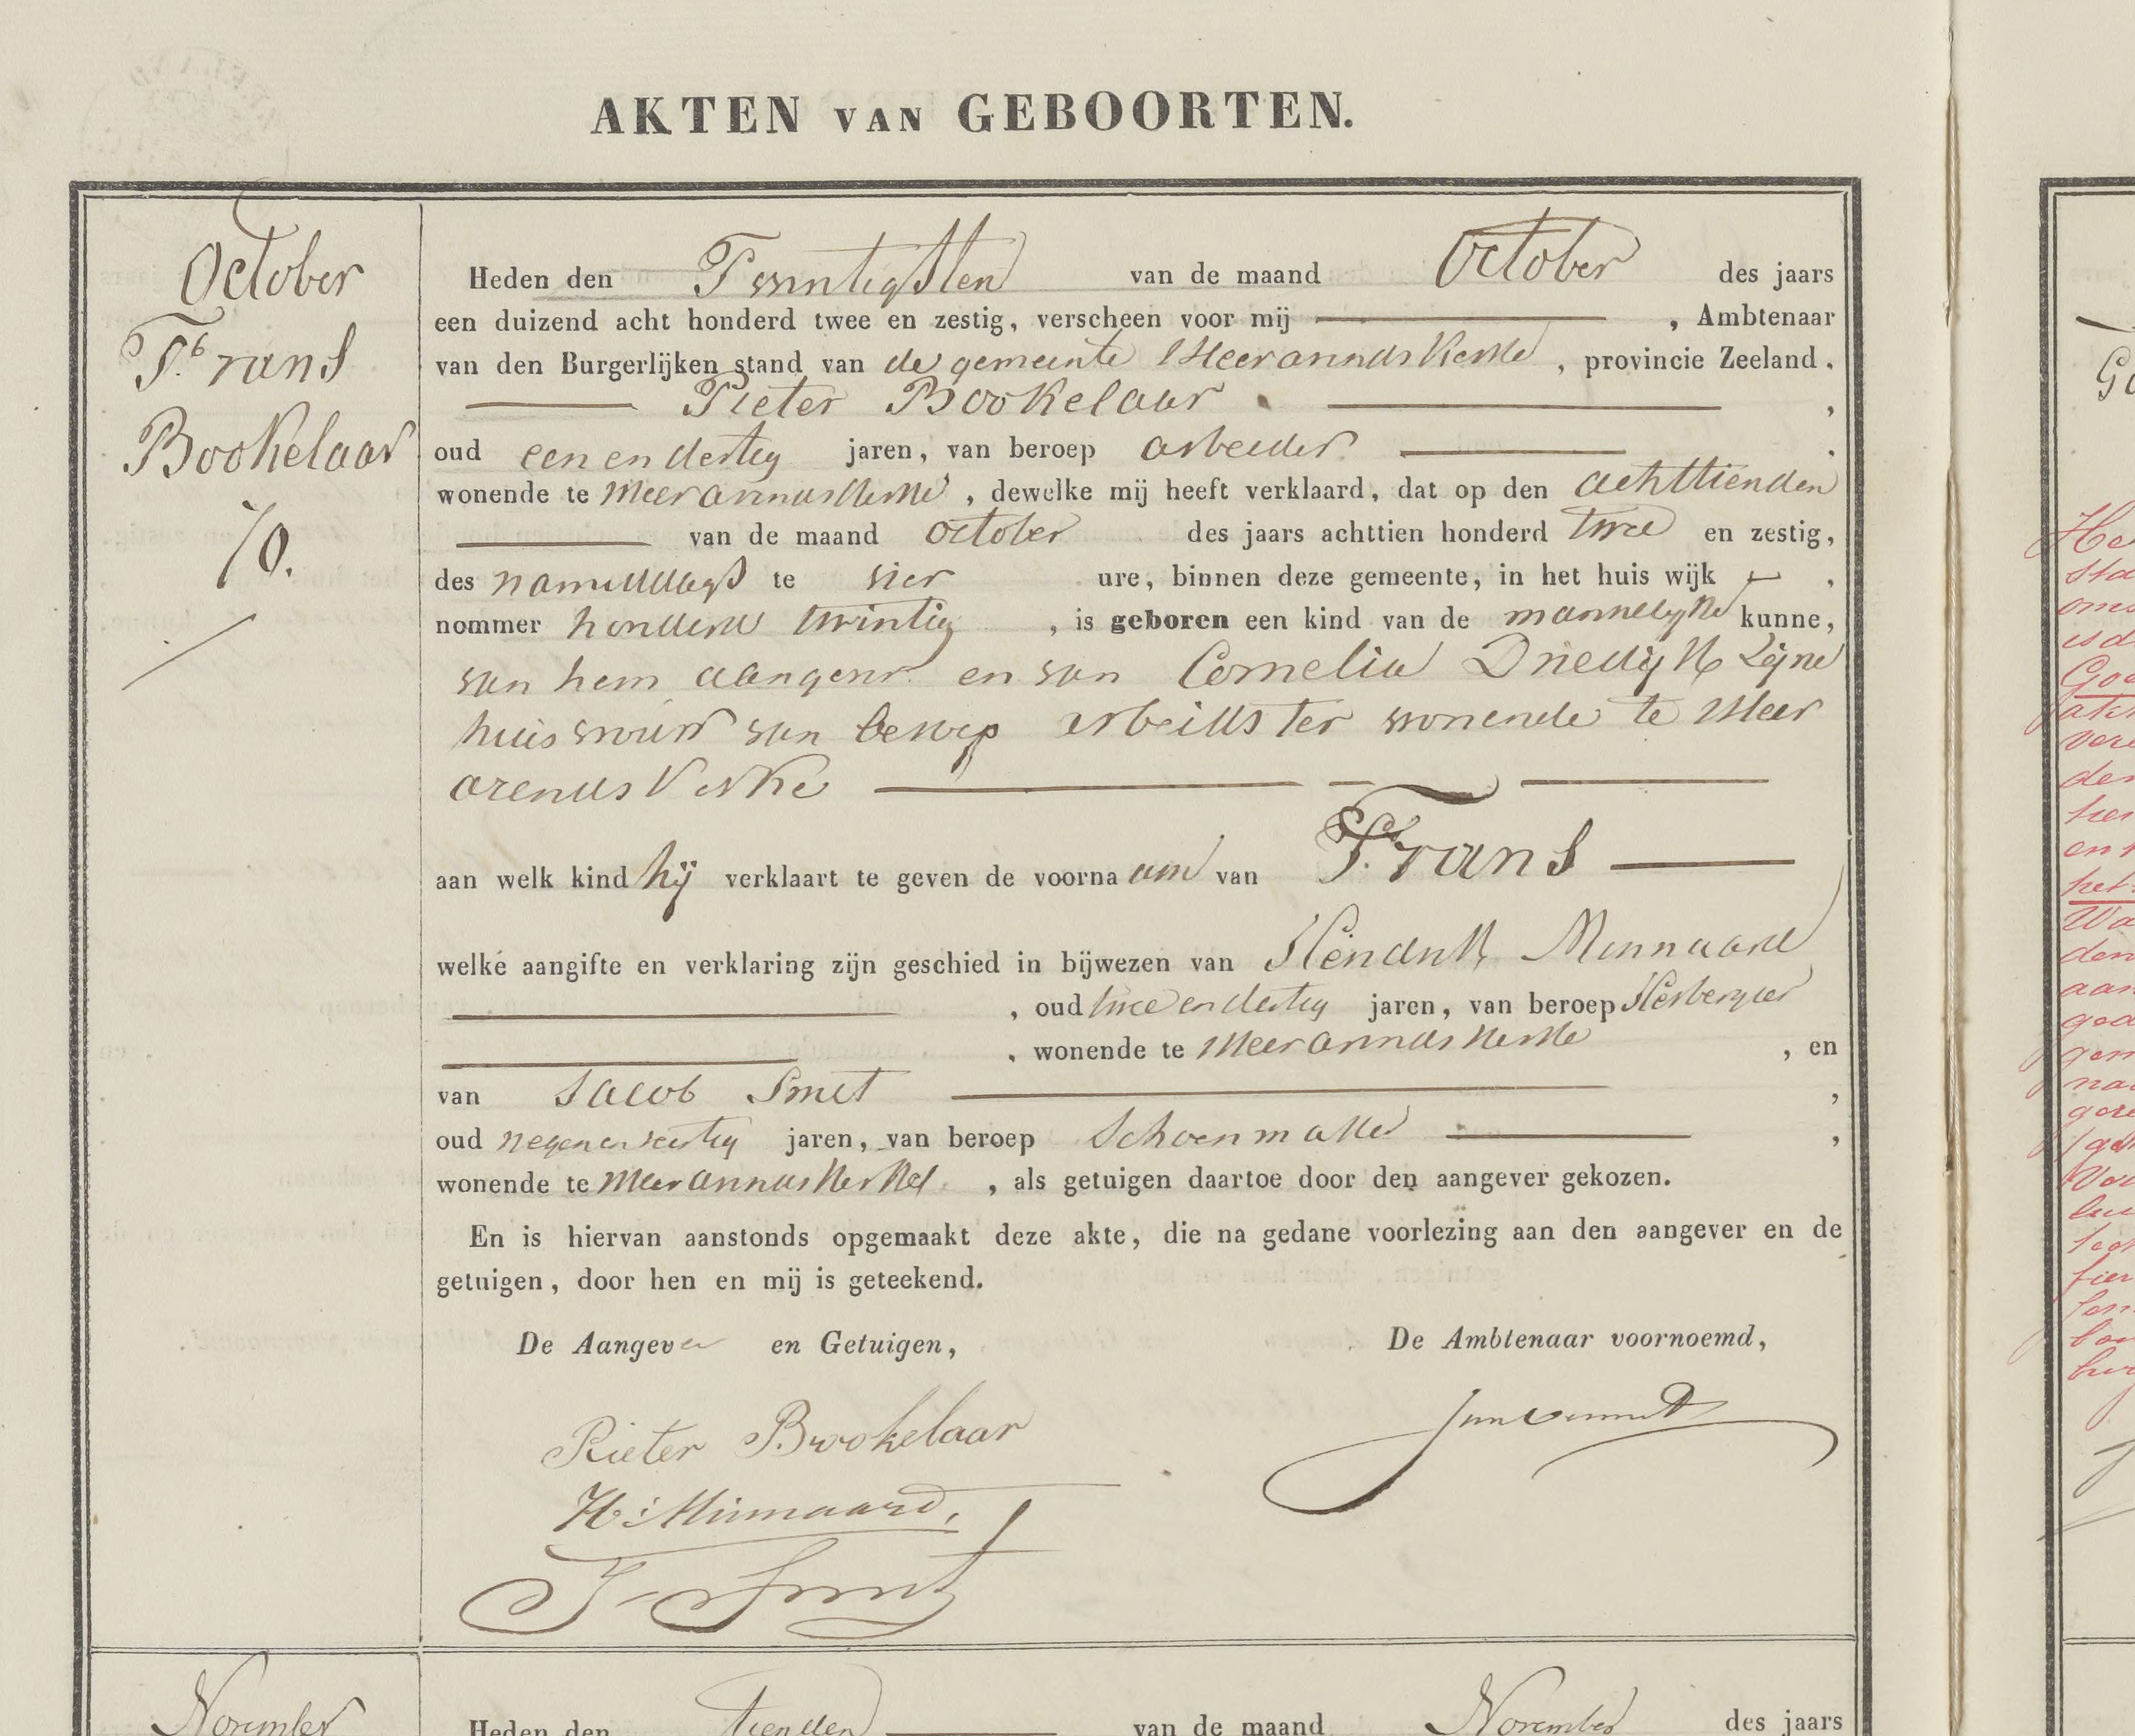 AKTEN VAN GEBOORTEN.
October
Frans
Bookelaar
70.
Heden den Twintigsten van de maand October des jaars
een duizend acht honderd twee en zestig, verscheen voor mij , Ambtenaar
van den Burgerlijken stand van de gemeente 'sHeerarendskerke , provincie Zeeland.
Pieter Bookelaar ,
oud eenendertig jaren, van beroep arbeider
wonende te sHeerarendskerke , dewelke mij heeft verklaard, dat op den achttienden
van de maand october des jaars achttien honderd twee en zestig,
des namiddags te vier ure, binnen deze gemeente, in het huis wijk ,
nommer honderd twintig , is geboren een kind van de mannelijke kunne,
van hem aangever en van Cornelia Driedijk zijne
huisvrouw van beroep arbeidster wonende te sHeer
arendskerke
aan welk kind hij verklaart te geven de voornaam van Frans
welke aangifte en verklaring zijn geschied in bijwezen van Hendrik Minnaard
, oud twee en dertig jaren, van beroep Herbergier
, wonende te sHeerarendskerke , en
van Jacob Smit ,
oud jaren, van beroep Schoenmaker ,
wonende te sHeerarendskerke , als getuigen daartoe door den aangever gekozen.
En is hiervan aanstonds opgemaakt deze akte, die na gedane voorlezing aan den aangever en de
getuigen, door hen en mij is geteekend.
De Aangever en Getuigen, De Ambtenaar voornoemd,
Pieter Bookelaar
H: Minnaard.
J Smit
November
Heden den tienden van de maand November des jaars